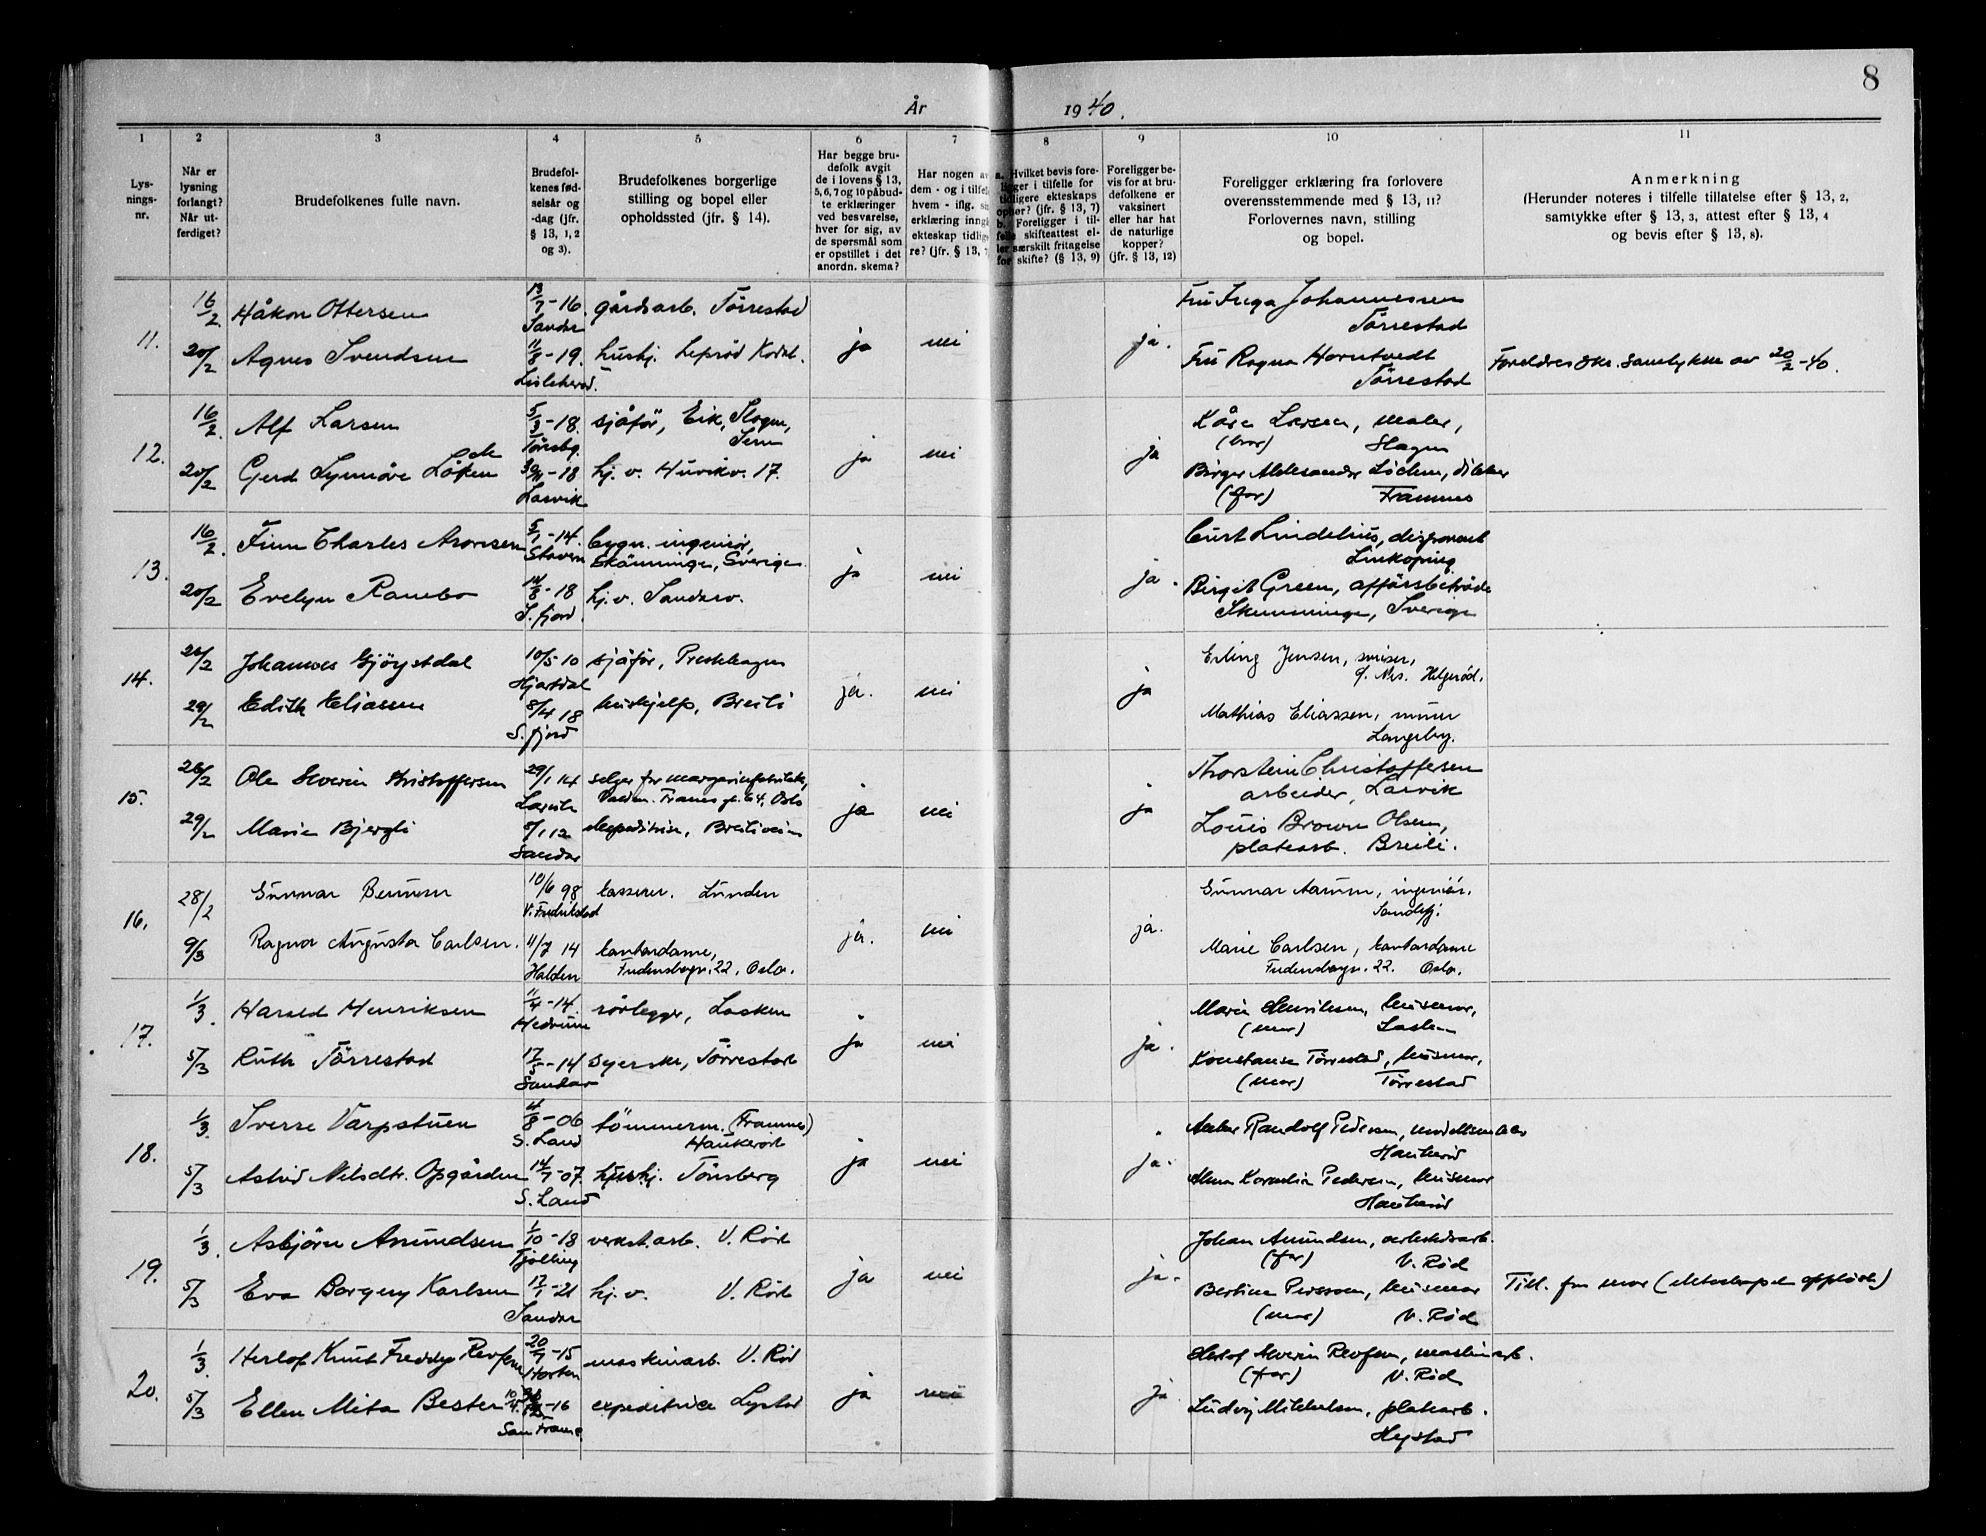 8
År 1940.
1 2 3 4 5 6 7 8 9 10 11
Lys-
nings-
nr.
Når er
lysning
forlangt?
Når ut-
ferdiget?
Brudefolkenes fulle navn.
Brudefol-
kenes fød-
selsår og
-dag (jfr.
§ 13, 1, 2
og 3).
Brudefolkenes borgerlige
stilling og bopel eller
opholdssted (jfr. § 14).
Har begge bru-
defolk avgit
de i lovens § 13,
5, 6, 7 og 10 påbud-
te erklæringer
ved besvarelse,
hver for sig, av
de spørsmål som
er opstillet i det
anordn. skema?
Har nogen av
dem - og i tilfel
hvem - iflg. si
erklæring inng
ekteskap tidlig
re? (jfr. § 13, 7
a. Hvilket bevis fore-
ligger i tilfelle for
tidligere ekteskaps
ophør? (jfr. § 13, 7)
b. Foreligger i til-
felle skifteattest el-
ler særskilt fritagelse
for skifte? (§ 13, 9)
Foreligger be-
vis for at bru-
defolkene er
vaksinert
eller har hat
de naturlige
kopper?
(jfr. § 13, 12)
Foreligger erklæring fra forlovere
overensstemmende med § 13, 11?
Forlovernes navn, stilling
og bopel.
Anmerkning
(Herunder noteres i tilfelle tillatelse efter § 13, 2,
samtykke efter § 13, 3, attest efter § 13, 4
og bevis efter § 13, 8).
11. 16/2. Håkon Ottersen 13/7-16. Sandar gårdsarb. Törrestad ja nei ja. Fru Inga Johannessen
Törrestad
20/2 Agnes Svendsen 11/8-19. hushj. Leprød Kodal. Fru Ragna Horntvedt
Törrestad
Foreldres skr. samtykke av 20/2-40.
12. 16/2. Alf Larsen 5/3-18. Tönsbg. sjåför, Eik, Slagen, Sem ja nei ja Kåre Larsen, maler,
(bror) Slagen
20/2 Gerd Synnöve Löken 30/11-18 Larvik hj. v. Huvikv. 17. Birger Aleksander Löchen, dikker
(far) Framnes
13. 16/2. Finn Charles Aronsen 5/1-14. Stavern bygn. ingeniör,
Skänninge, Sverige ja nei ja. Curt Lindelius, disponent
Linköping
20/2 Evelyn Rambo 14/8-18 S. fjord. hj. v. Sandarv. Birgit Green, affärsbiträde
Skenninge, Sverige
14. 26/2 Johannes Gjöystdal 10/5 10 Hjartdal sjåför, Prestehagen ja. nei ja Erling Jensen, smiser,
Helgeröd.
29/2 Edith Eliassen 8/4 18 S. fjord hushjelp, Breili Mathias Eliassen, murer
Langeby.
15. 26/2 Ole Severin Kristoffersen 29/1 14 Larvik selger for margarinfabrikk,
gt. 64, Oslo ja nei ja Thorstein Christoffersen
arbeider, Larvik
29/2 Marie Bjergli Sandar ekspeditrise, Breiliveien Louis Brown Olsen,
platearb. Breili.
16. 28/2 Gunnar Bennesen 10/6 98 V. Fredrikstad kasserer. Lunden ja. nei ja. Gunnar Aarum, ingeniör.
Sandefj.
9/3 Ragna Augusta Carlsen. 11/7 14 Halden kontordame,
Fredensborgv. 22. Oslo. Marie Carlsen, kontordame
Fredensborgv. 22. Oslo.
17. 1/3. Harald Henriksen 11/4-14. Hedrum rörlegger, Lasken ja nei ja. Marie Henriksen, husmor,
(mor) Lasken
5/3 Ruth Törrestad 17/5-14 Sandar syerske, Törrestad Konstanse Törrestad, husmor,
(mor) Törrestad
18. 1/3. Sverre Varpstuen 4/8-06 S. Land tömmerm. (Framnes)
Haukeröd ja nei ja. Randolf Pedersen,
Haukeröd
5/3 Astrid Nilsdtr. Opgården 14/7-07. S. Land hushj. Tönsberg Anna Kornelia Pedersen, husmor
Haukeröd
19. 1/3. Asbjörn Amundsen 1/10-18 Tjölling verkst.arb. V. Röd ja nei ja. Johan Amundsen, verkstedsarb.
(far) V. Röd
5/3 Eva Borgny Karlsen 17/1-21 Sandar hj. v. V. Röd Bertine Pedersen, husmor
(mor) V. Röd
Till. fra mor (ekteskapet opplöst)
20. 1/3. Herlof Knut Freddy Revfem 20/7-15 Horten maskinarb. V. Röd ja nei ja Herlof Severin Revfem, maskinarb.
(far) V. Röd
5/3 Ellen Mita Bester -16 San Franc. expeditrice Lystad Ludvig Mikkelsen, platearb.
Hystad